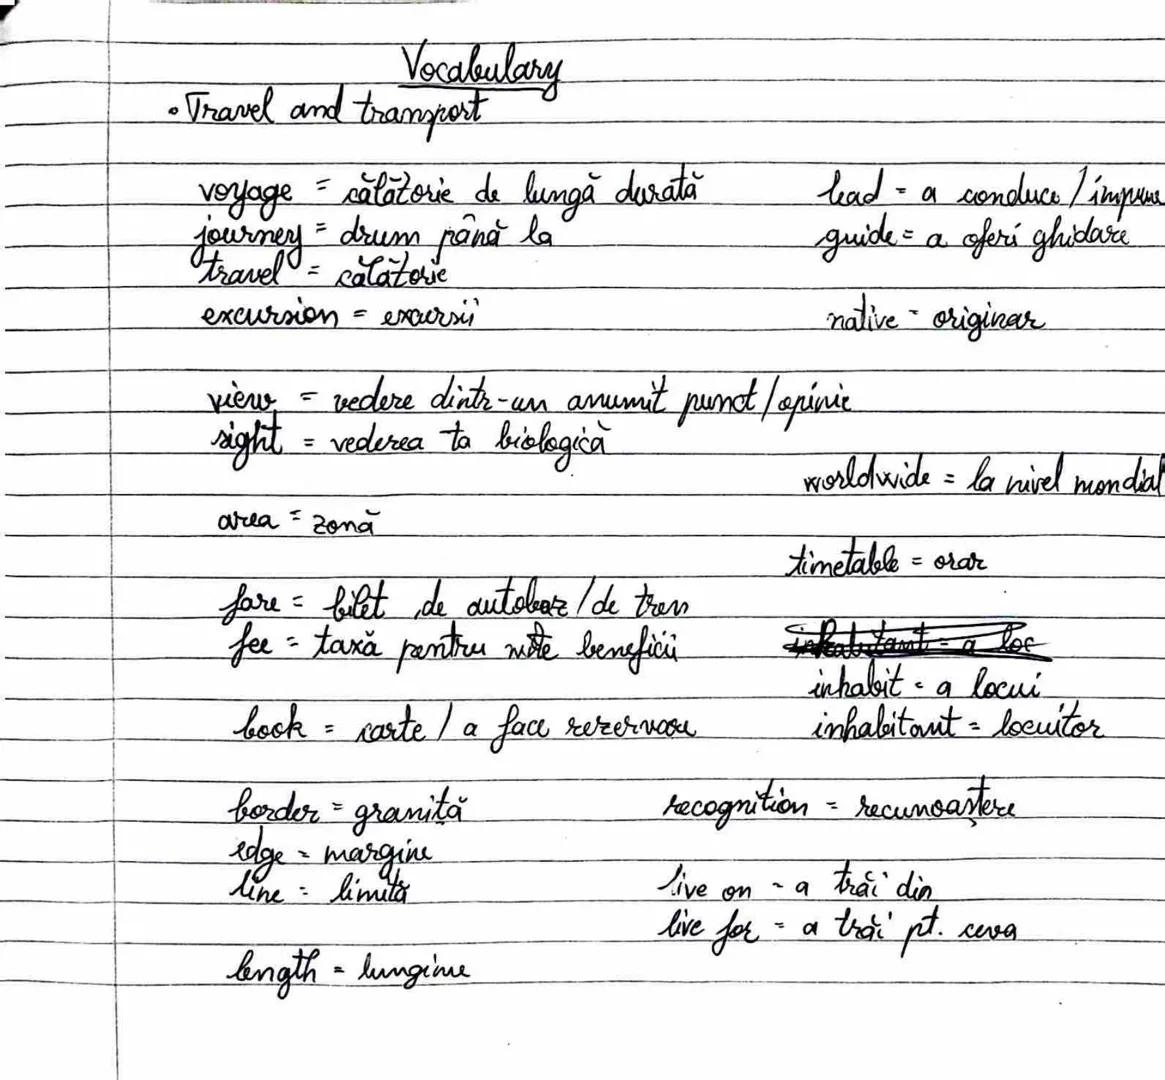 Vocabulary
• Travel and transport
voyage = călătorie de lungă durată
journey = drum până la
travel = călătorie
excursion = excursii
view = vedere dintr-un anumit punct/opinie
sight = vederea ta biologică
area = zonă
fare = bilet de autobuz/de tren
fee = taxă pentru niște beneficii
book = carte / a face rezervare
border = graniță
edge = margine
line = limită
length = lungime
lead = a conduce / impune
guide = a oferi ghidare
native = originar
worldwide = la nivel mondial
timetable = orar
inhabitant = a loc
inhabit = a locui
inhabitant = locuitor
recognition = recunoaștere
live on = a trăi din
live for = a trăi pt. ceva